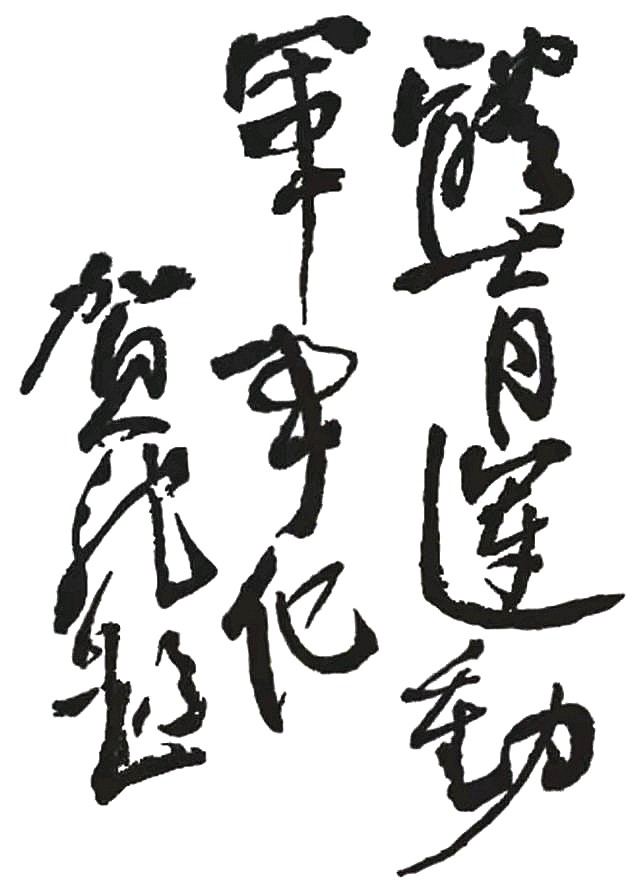 體育運動
軍事化
賀龍題